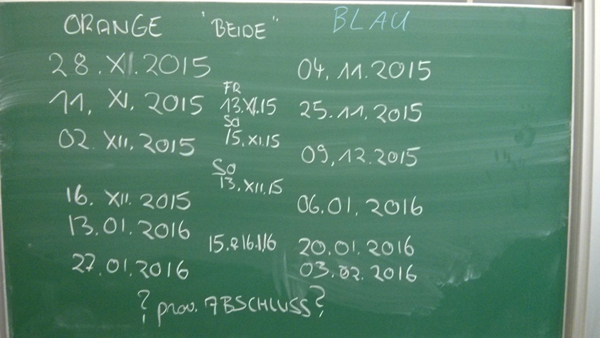 ORANGE "BEIDE" BLAU
28. XI. 2015 04. 11. 2015
FR
11. XI. 2015 13. XI. 15 25. 11. 2015
SO
02. XII. 2015 15. XI. 15 09. 12. 2015
SO
13. XII. 15
16. XII. 2015 06. 01. 2016
13. 01. 2016 15. & 16. 1/16 20. 01. 2016
27. 01. 2016 03. 02. 2016
? prov. ABSCHLUSS?